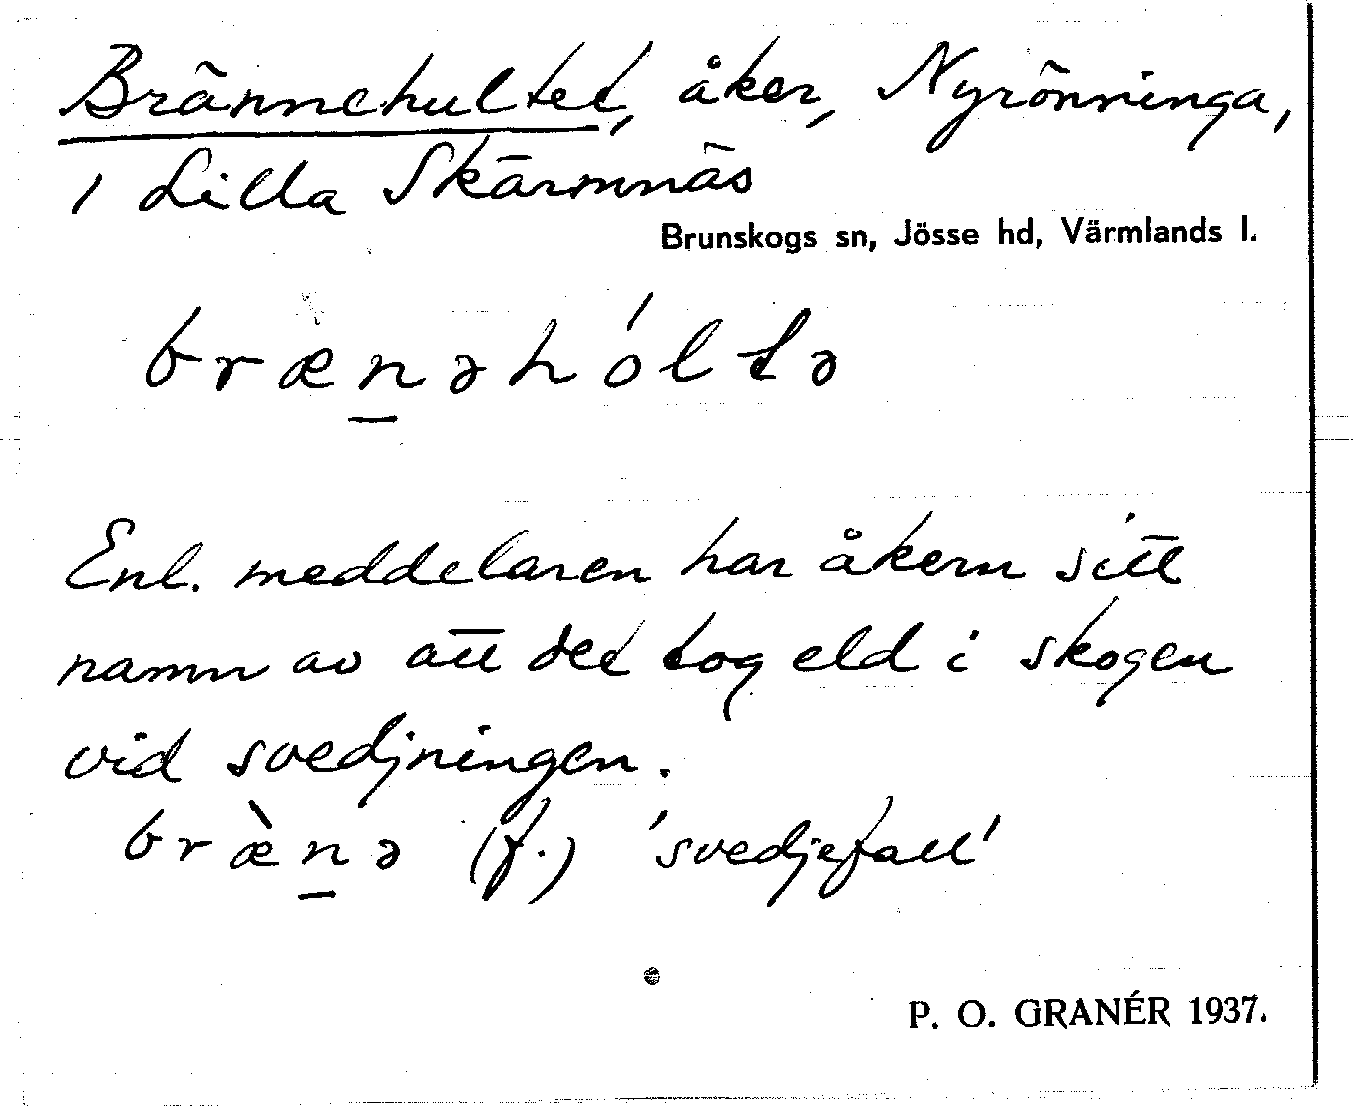 Brännehultet, åker, Nyrönninga,
1 Lilla Skärmnäs
Brunskogs sn, Jösse hd, Värmlands l.
bræn̲əhóltə
Enl. meddelaren har åkern sitt
namn av att det tog eld i skogen
vid svedjningen.
bræ̀n̲ə (f.) 'svedjefall'
P. O. GRANÉR 1937.